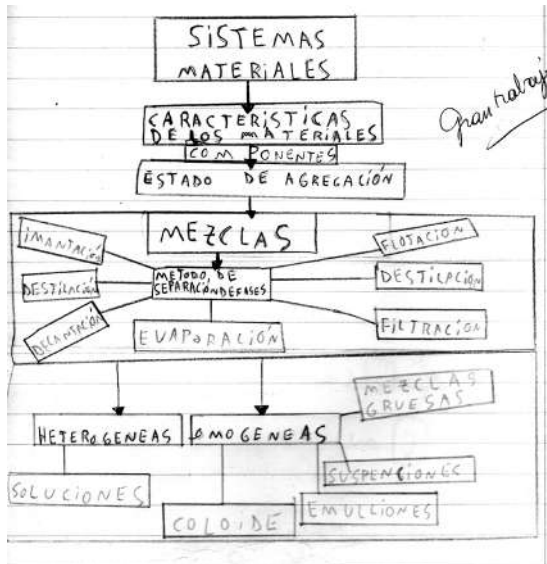 SISTEMAS
MATERIALES
CARACTERÍSTICAS
DE LOS MATERIALES
COMPONENTES
ESTADO DE AGREGACIÓN
Gran trabajo
MEZCLAS
IMANTACIÓN
FLOTACION
DESTILACIÓN
METODO, DE
SEPARACIÓN DE FASES
DESTILACIÓN
DECANTACIÓN
EVAPORACIÓN
FILTRACIÓN
MEZCLAS
GRUESAS
HETEROGENEAS
OMOGENEAS
SUSPENCIONES
SOLUCIONES
COLOIDE
EMULCIONES